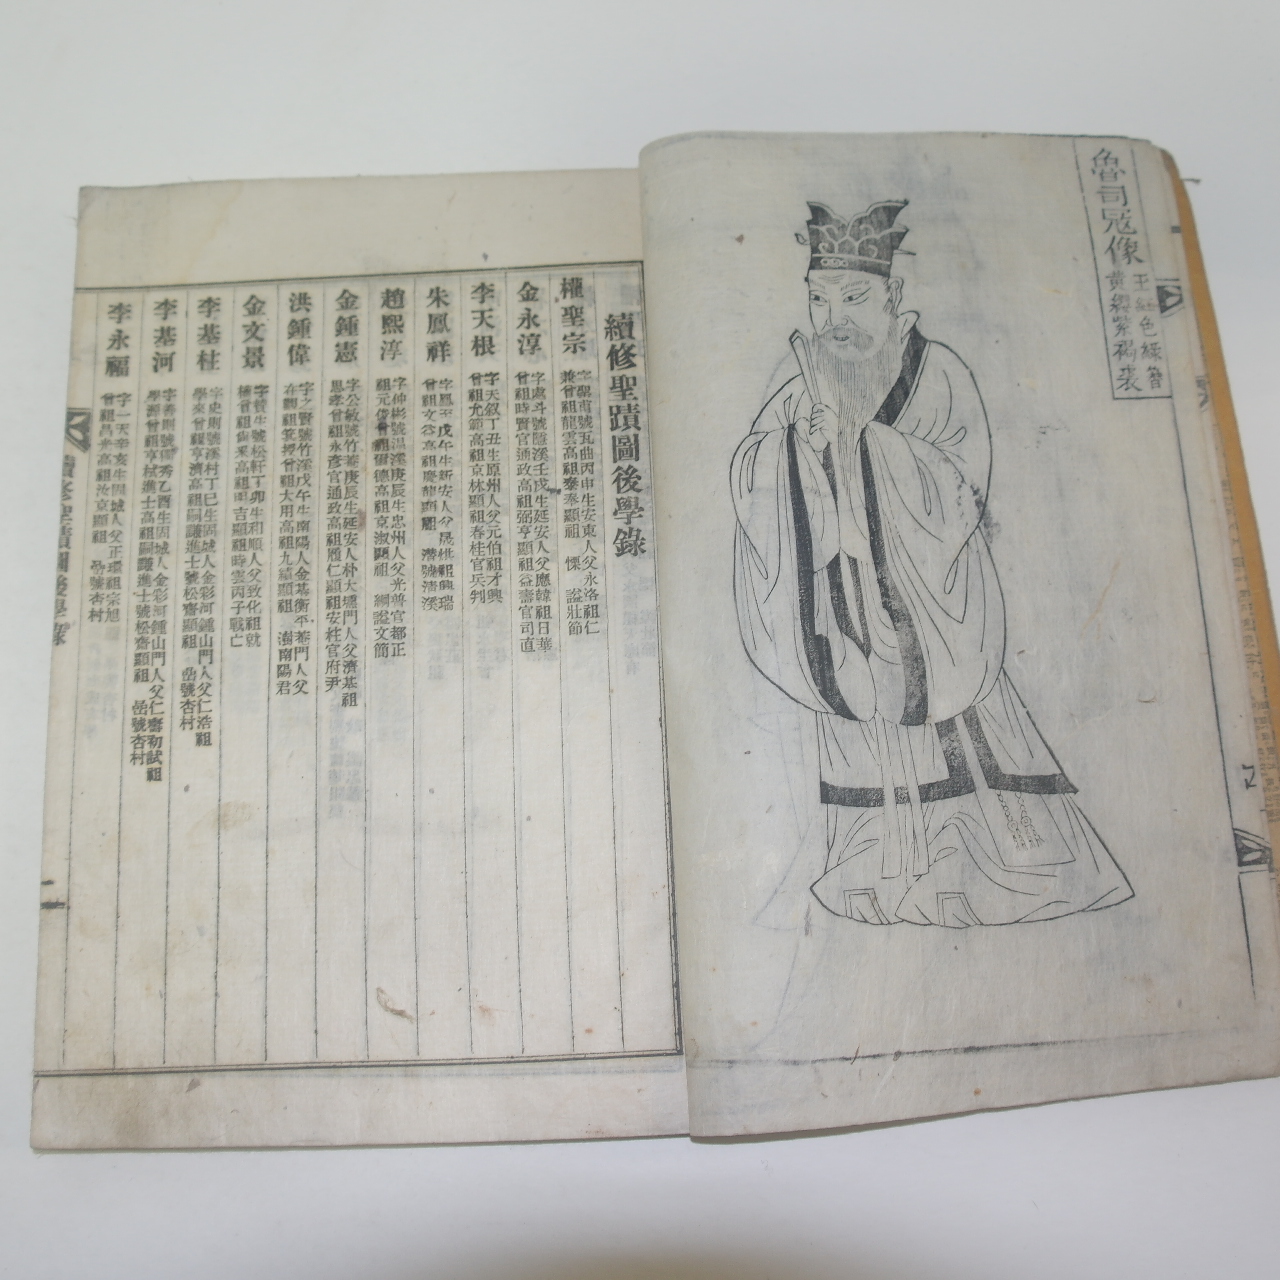 魯司冠像
玉紅色綠簪
黃纓紫裼裘
續修聖蹟圖後學錄
權聖宗
字聖甫號瓦曲丙申生安東人父永洛祖仁
兼曾祖龍雲高祖泰奉顯祖 慄 謚壯節
金永淳
字處斗號陰溪壬戌生延安人父應韓祖日華
曾祖時賢官通政高祖弼亨顯祖益壽官司直
李天根
字天叙丁丑生原州人父元伯祖才興
曾祖允範高祖京林顯祖春桂官兵判
朱鳳祥
字鳳至戊午生新安人父晟紕祖興瑞
曾祖文谷高祖慶龍顯祖 潛號清溪
趙熙淳
字仲彬號温溪庚辰生忠州人父光普官都正
祖元俊曾祖爾德高祖京淑顯祖 綱謚文簡
金鍾憲
字公敏號竹菴庚辰生延安人朴大壚門人父濟基祖
思孝曾祖永彦官通政高祖履仁顯祖安柱官府尹
洪鍾偉
字之賢號竹溪戊午生南陽人金基衡平菴門人父
在觀祖箕授曾祖大用高祖九績顯祖 澍南陽君
金文景
字贊生號松軒丁卯生和順人父致化祖就
權曾祖尙采高祖明吉顯祖時雲丙子戰亡
李基柱
字史則號溪村丁巳生固城人金彩河鍾山門人父仁浩祖
學來曾祖亨濟高祖嗣謙進士號松齋顯祖 嵒號杏村
李基河
字善則號儒秀乙酉生固城人金彩河鍾山門人父仁壽初試祖
學源曾祖亨栻進士高祖嗣謙進士號松齋顯祖 嵒號杏村
李永福
字一天辛亥生固城人父正環祖宗旭
曾祖昌孝高祖汝京顯祖 嵒號杏村
續修聖蹟圖後學錄
二